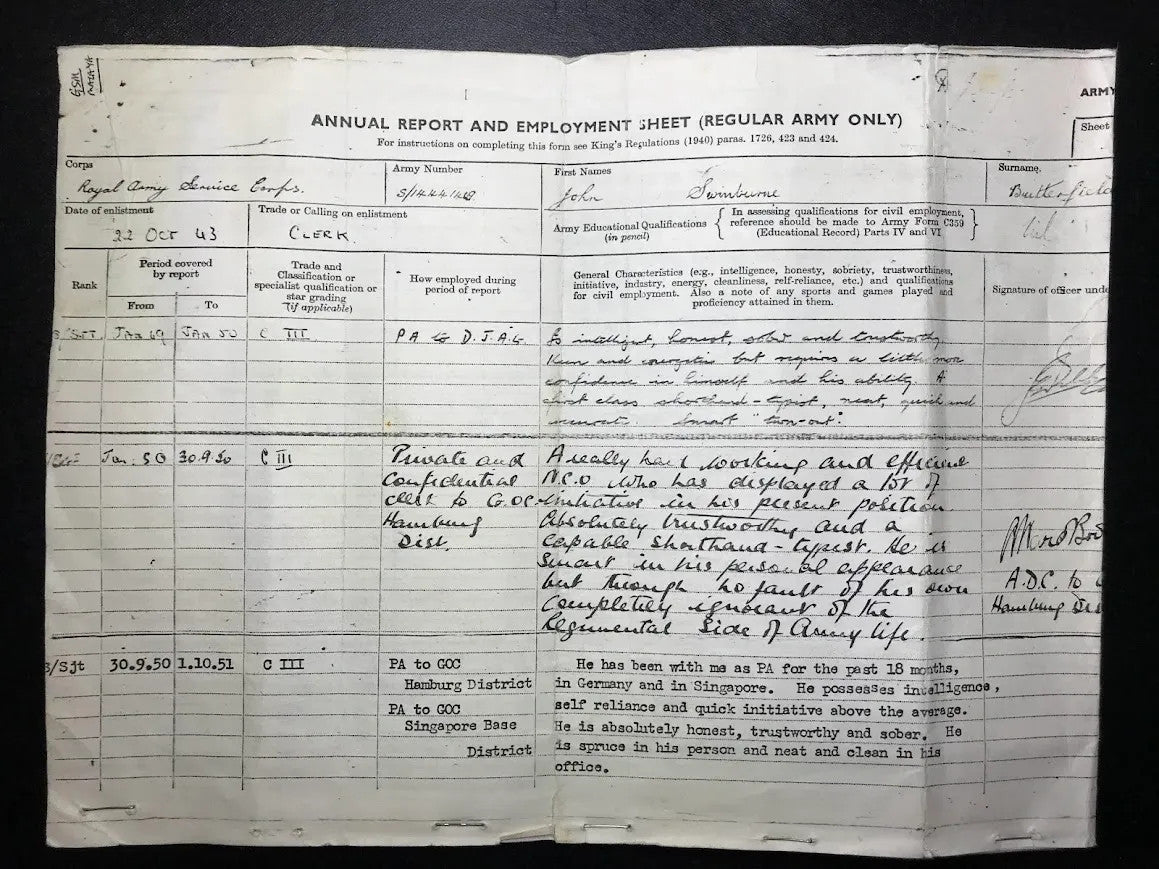 GSM
MALAYA
ARMY
ANNUAL REPORT AND EMPLOYMENT SHEET (REGULAR ARMY ONLY)
Sheet
For instructions on completing this form see King's Regulations (1940) paras. 1726, 423 and 424.
Corps
Royal Army Service Corps.
Army Number
First Names
John Swinburne
Surname.
Butterfield
Date of enlistment
22 OCT 43
Trade or Calling on enlistment
CLERK
Army Educational Qualifications
(in pencil)
In assessing qualifications for civil employment,
reference should be made to Army Form C359
(Educational Record) Parts IV and VI
Rank
Period covered
by report
From
To
Trade and
Classification or
specialist qualification or
star grading
(if applicable)
How employed during
period of report
General Characteristics (e.g., intelligence, honesty, sobriety, trustworthiness,
initiative, industry, energy, cleanliness, self-reliance, etc.) and qualifications
for civil employment. Also a note of any sports and games played and
proficiency attained in them.
Signature of officer unde
S/SJT. JAN 49 JAN 50 C III PA to D.J.A.G
Is intelligent, honest, sober and trustworthy.
Keen and energetic but requires a little more
confidence in himself and his ability. A
first class shorthand-typist, neat, quick and
accurate. Smart "turn-out".
Jan. 50 30.9.50 C III
Private and
Confidential
clerk to G.O.C.
Hamburg
Dist.
A really hard working and efficient
N.C.O who has displayed a lot of
initiative in his present position.
Absolutely trustworthy and a
capable shorthand-typist. He is
smart in his personal appearance
but through no fault of his own
completely ignorant of the
Regimental side of Army life.
A.D.C. to
Hamburg Dis
S/Sjt 30.9.50 1.10.51 C III
PA to GOC
Hamburg District
PA to GOC
Singapore Base
District
He has been with me as PA for the past 18 months,
in Germany and in Singapore. He possesses intelligence,
self reliance and quick initiative above the average.
He is absolutely honest, trustworthy and sober. He
is spruce in his person and neat and clean in his
office.